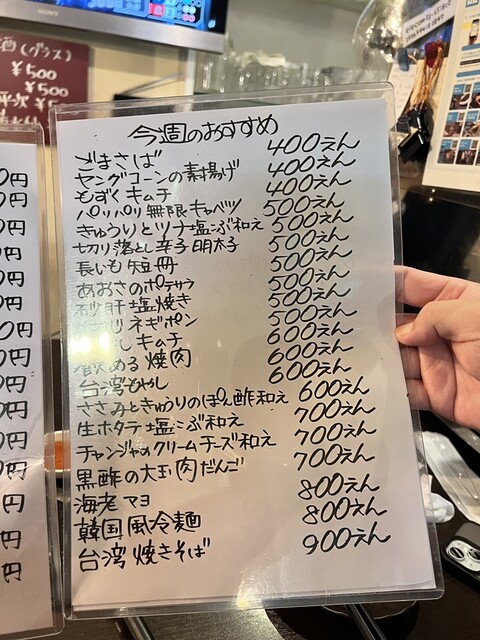 SONY
酒(グラス)
¥500
¥500
今週のおすすめ
ごまさば 400えん
ヤングコーンの素揚げ 400えん
もずくキムチ 400えん
パリパリ無限キャベツ 500えん
きゅうりとツナ塩こぶ和え 500えん
切り落とし辛子明太子 500えん
長いも短冊 500えん
あおさのポテサラ 500えん
砂肝塩焼き 500えん
ネギポン 500えん
キムチ 600えん
飲める焼肉 600えん
台湾もやし 600えん
ささみときゅうりのぽん酢和え 600えん
生ホタテ塩こぶ和え 700えん
チャンジャのクリームチーズ和え 700えん
黒酢の大玉肉だんご 700えん
海老マヨ 800えん
韓国風冷麺 800えん
台湾焼きそば 900えん